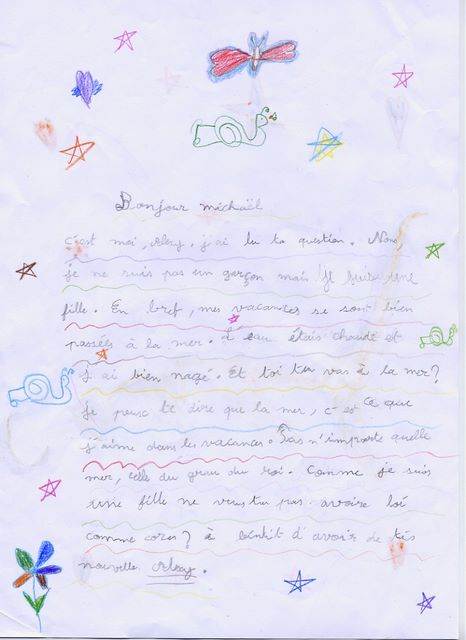 Bonjour michaël
c'est moi, Alexy. j'ai lu ta question. Non,
je ne suis pas un garçon mais je suis une
fille. En bref, mes vacances se sont bien
passées à la mer. L'eau étais chaude et
j'ai bien nagé. Et toi tu vas à la mer?
je peux te dire que la mer, c'est ce que
j'aime dans les vacances. Pas n'importe quelle
mer, celle du grau du roi. Comme je suis
une fille ne veus tu pas avoire
comme cores? à bientit d'avoir de tes
nouvelles. Alexy.